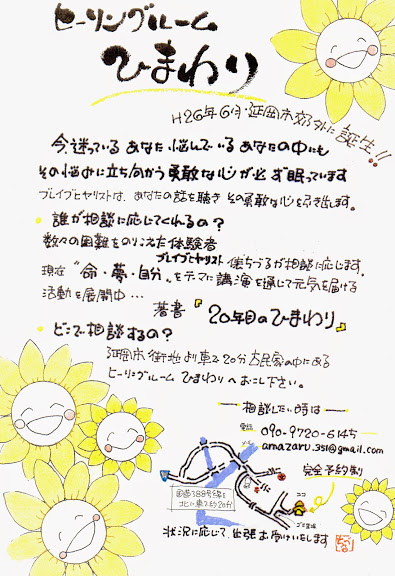 ヒーリングルーム
ひまわり
H26年6月・延岡市郊外に誕生!!
今、迷っているあなた、悩んでいるあなたの中にも
その悩みに立ち向かう勇敢な心が必ず眠っています
ブレイブヒヤリストは、あなたの話を聴きその勇敢な心を引き出します。
誰が相談に応じてくれるの?
数々の困難をのりこえた体験者
ブレイブヒヤリスト 儀ちづるが相談に応じます。
現在"命・夢・自分"をテーマに講演を通じて元気を届ける
活動を展開中…
著書『20年目のひまわり』
どこで相談するの?
延岡市街地より車で20分 古民家の中にある
ヒーリングルーム ひまわりへおこし下さい。
相談したい時は
電話 090-9720-6145
メール amazaru.351@gmail.com
完全予約制
国道388号線を
北に車で約20分
ココ
状況に応じて、出張お受けいたします